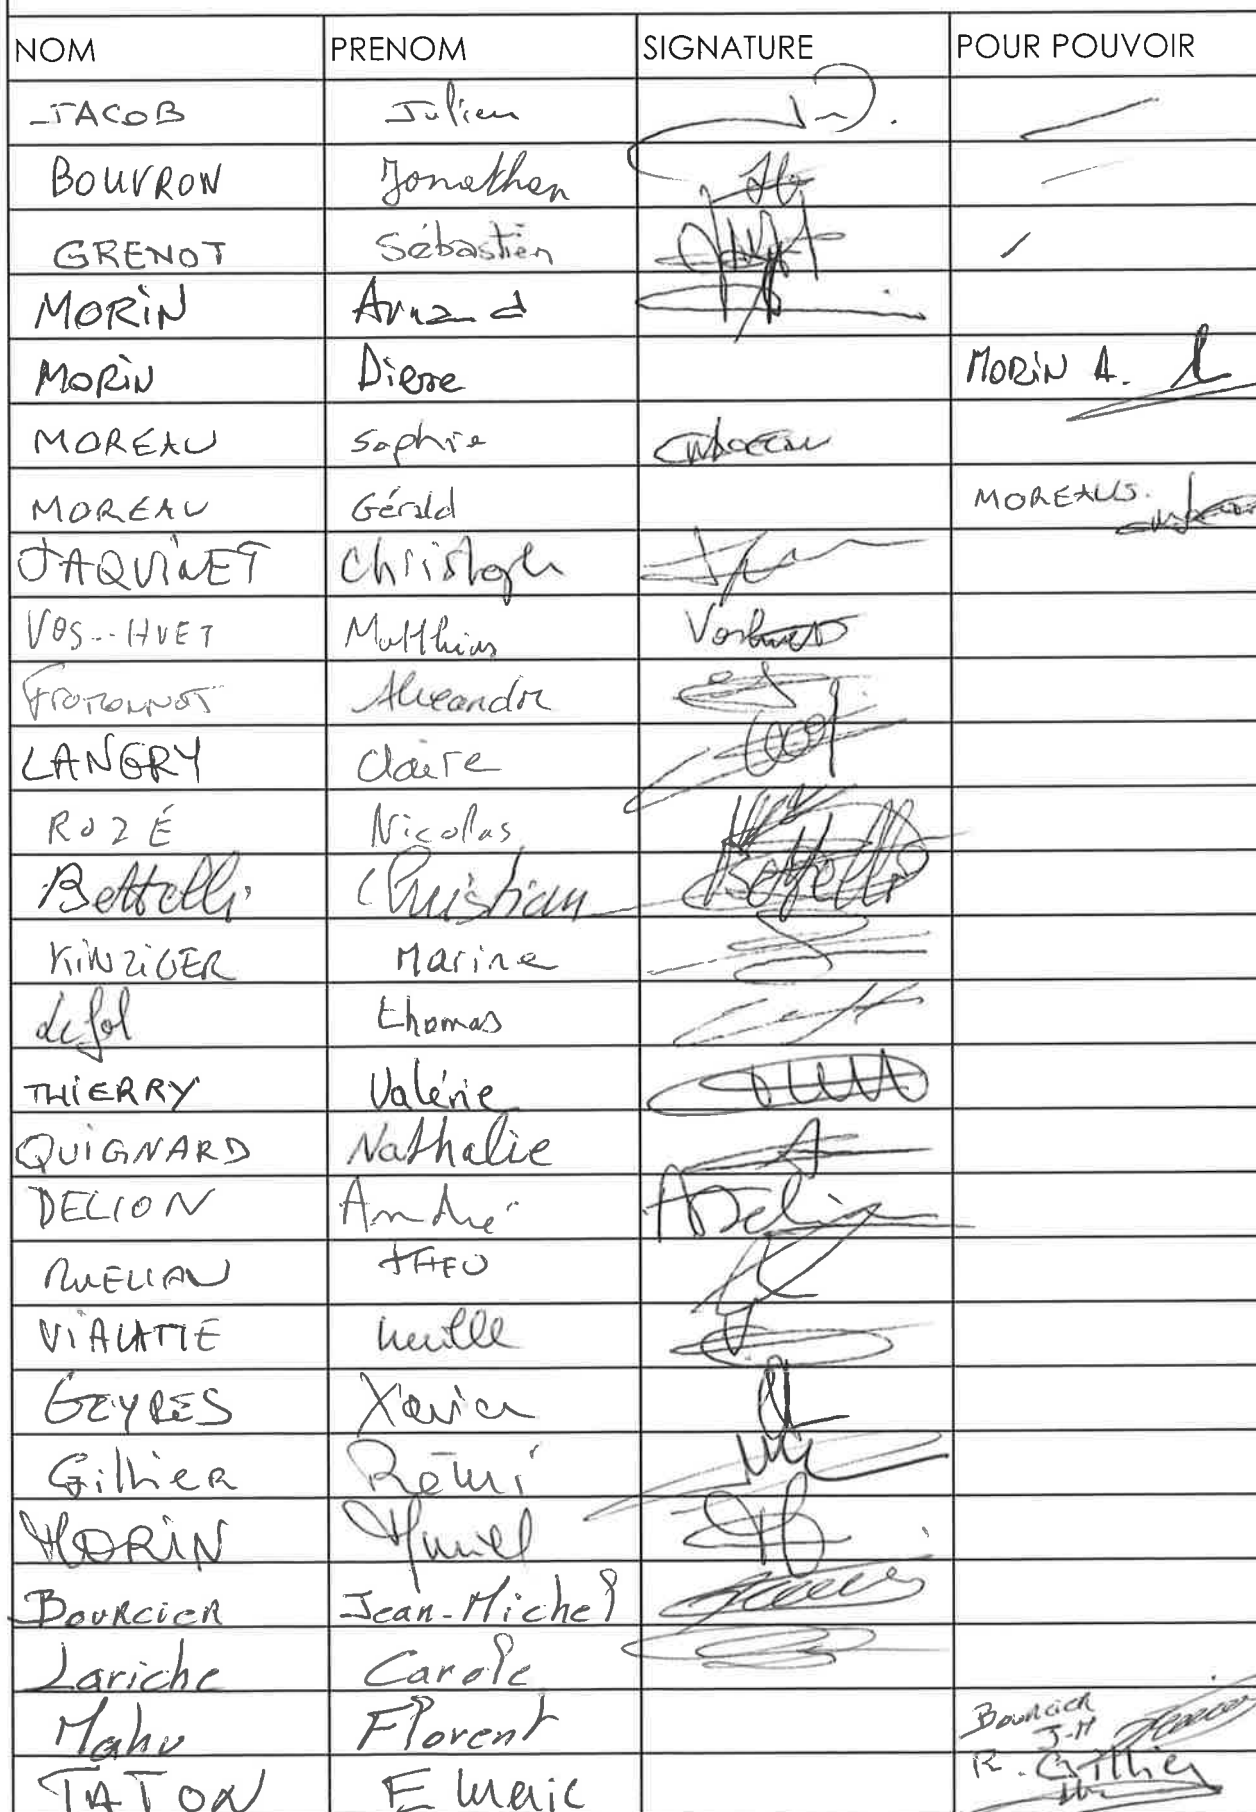 NOM PRENOM SIGNATURE POUR POUVOIR
JACOB Julien
BOUVRON Jonathan
GRENOT Sébastien
MORIN Arnaud
MORIN Pierre MORIN A.
MOREAU Sophie
MOREAU Gérald MOREAU S.
JAQUINET Christophe
VOS--HUET Matthias
Alexandre
LANGRY Claire
ROZÉ Nicolas
Bettelli Christian Bettelli
KINZIGER Marine
Lefol thomas
THIERRY Valérie
QUIGNARD Nathalie
DELION André ADelion
RUELLAN THEO
VIALATTE
GEYRES Xavier
Gillier Rémi
MORIN Muriel
Bourcier Jean-Michel
Lariche Carole
Mahu Florent Bourcier
J-M
TATON Emeric R. Gillier